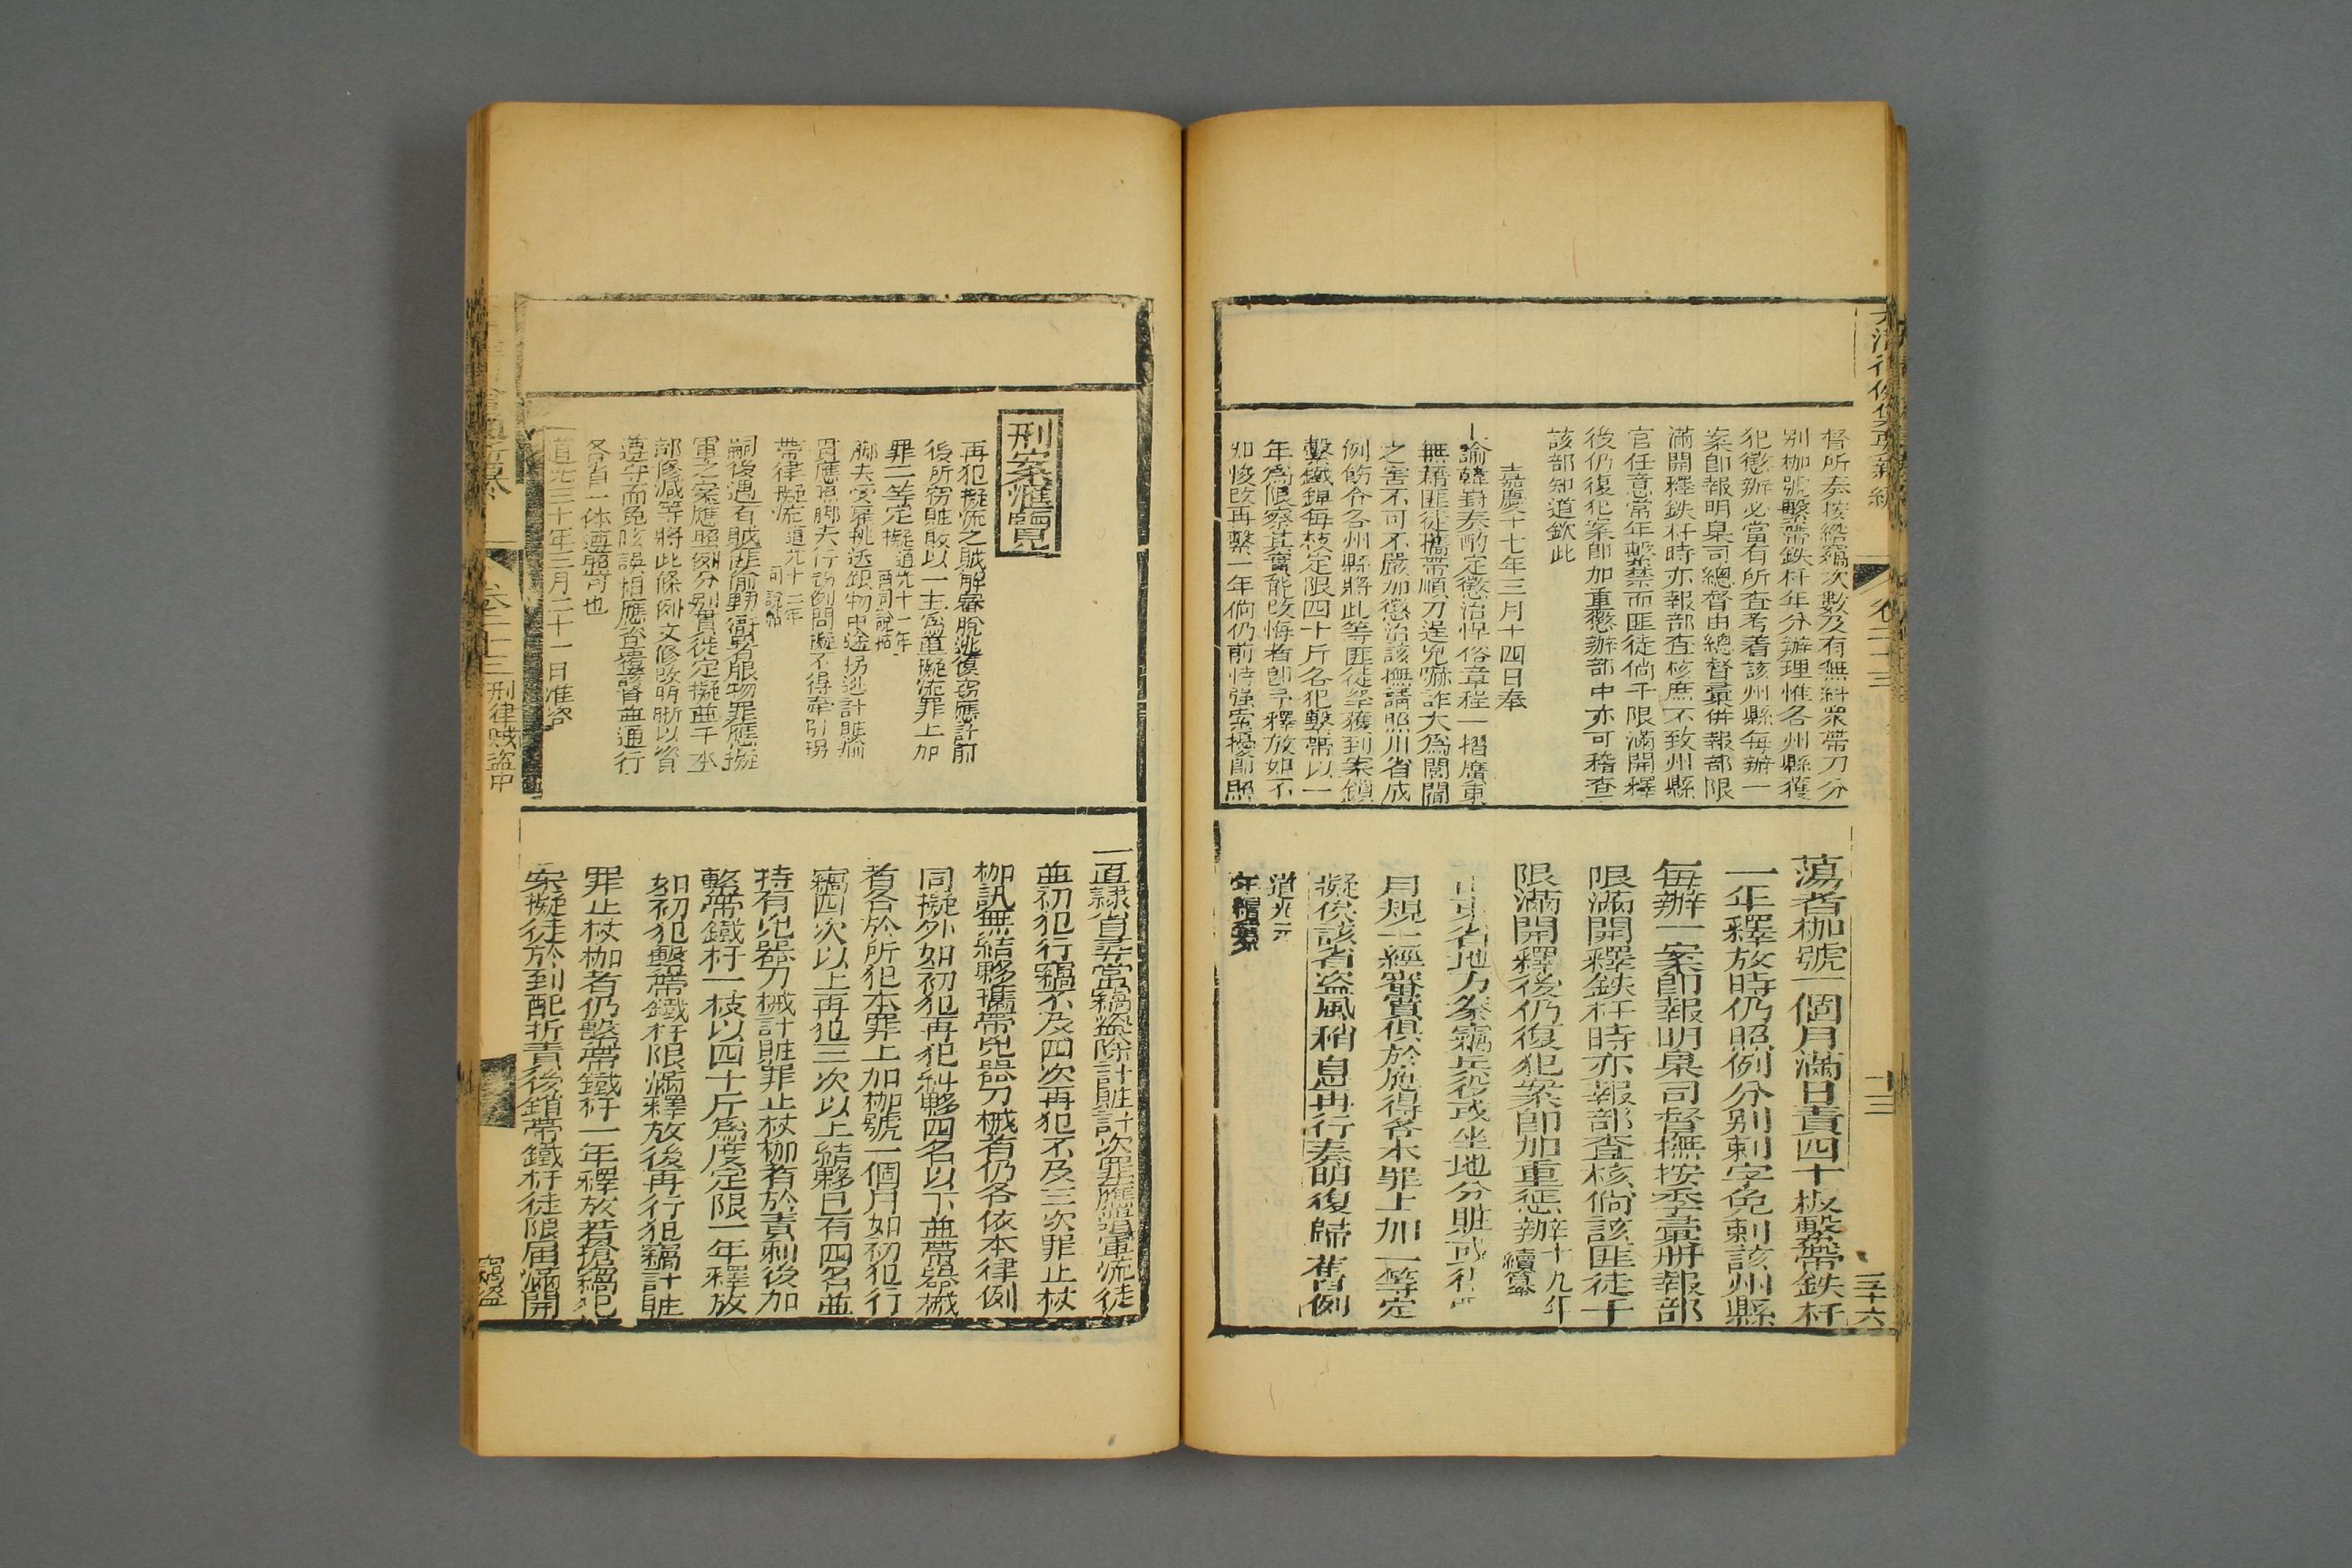 督所奏按經竊次數及有無糾衆帶刀分
別枷號繫帶鉄杆年分辦理惟各州縣獲
犯懲辦必當有所查考着該州縣每辦一
案卽報明臬司總督由總督彙併報部限
滿開釋鉄杆時亦報部查核庶不致州縣
官任意常年繫禁而匪徒倘于限滿開釋
後仍復犯案卽加重懲辦部中亦可稽查
該部知道欽此
嘉慶十七年三月十四日奉
上諭韓對奏酌定懲治悍俗章程一摺廣東
無藉匪徒攜帶順刀逞兇嚇詐大爲閭閻
之害不可不嚴加懲治該撫請照川省成
例飭令各州縣將此等匪徒拏獲到案鎖
繫鐵錕每枝定限四十斤各犯繫帶以一
年爲限察其實能改悔者卽予釋放如不
知悛改再繫一年倘仍前恃强索擾卽照
蕩者枷號一個月滿日責四十板繫帶鉄杆
一年釋放時仍照例分别刺字免刺該州縣
每辦一案卽報明臬司督撫按季彙册報部
限滿開釋鉄杆時亦報部查核倘該匪徒于
限滿開釋後仍復犯案卽加重懲辦十九年
續纂
山東省地方豢竊兵役或坐地分賍或
月規一經審實俱於應得各本罪上加一等定
擬俟該省盜風稍息再行奏明復歸舊例
道光元
年續纂
卷二十三
十三
三十六
刑案滙覽
再犯擬流之賊解審脫逃復竊應計前
後所竊賍數以一主爲重擬流罪上加
罪二等定擬道光十一年
兩司說帖
脚夫受雇挑送銀物中途拐逃計賍滿
貫應照脚夫行竊例問擬不得牽引拐
帶律擬流道光十二年
司說帖
嗣後遇有賊匪偷竊衙署服物罪應擬
軍之案應照例分别首從定擬並于本
部修減等將此條例文修改明晰以資
遵守而免歧誤相應咨覆該督並通行
各省一体遵照可也
道光三十年三月二十一日准咨
一直隸省尋常竊盜除計賍計次罪應遣軍流徒
並初犯行竊不及四次再犯不及三次罪止杖
枷訊無結夥攜帶兇器刀械者仍各依本律例
同擬外如初犯再犯糾夥四名以下並帶器械
者各於所犯本罪上加枷號一個月如初犯行
竊四次以上再犯三次以上結夥已有四名並
持有兇器刀械計賍罪止杖枷者於責刺後加
繫帶鐵杆一枝以四十斤爲度定限一年釋放
如初犯繫帶鐵杆限滿釋放後再行犯竊計賍
罪止杖枷者仍繫帶鐵杆一年釋放若搶竊犯
案擬徒於到配折責後鎖帶鐵杆徒限屆滿開
卷二十三 刑律賊盜中
竊盜